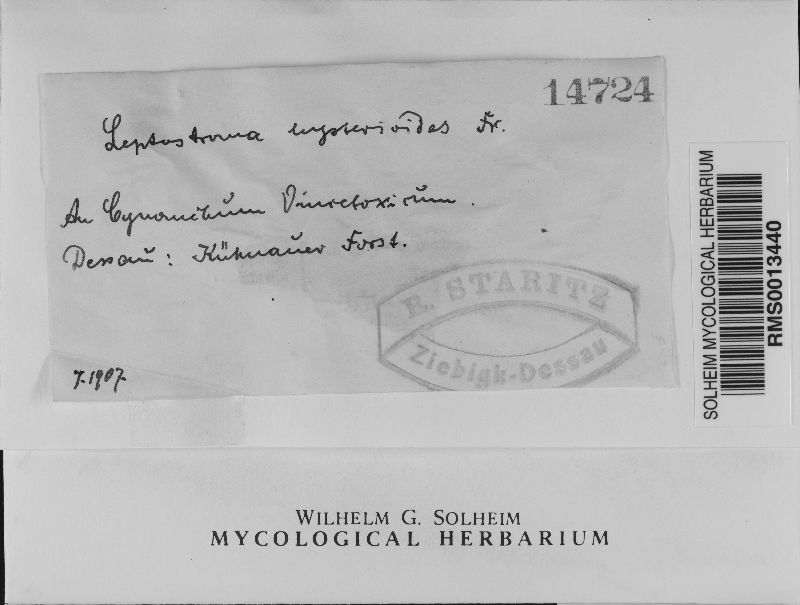 14724
Leptostroma hysterioides Fr.
An Cynanchum Vincetoxicum.
Dessau: Kühnauer Forst.
R. STARITZ
Ziebigk-Dessau
7.1907.
SOLHEIM MYCOLOGICAL HERBARIUM
RMS0013440
WILHELM G. SOLHEIM
MYCOLOGICAL HERBARIUM